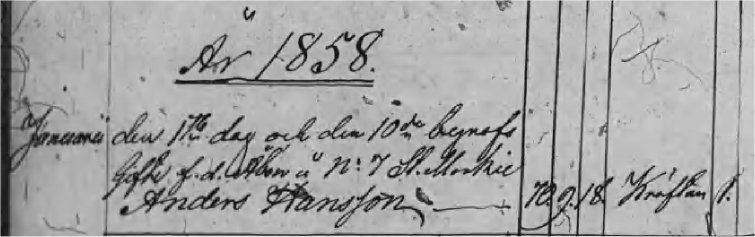 År 1858.
Januarii den 1sta dag och den 10de begrofs
Gifte f. d. Åbon å No 7 St.
Anders Hansson 70. 9. 18. Kräftan 1.